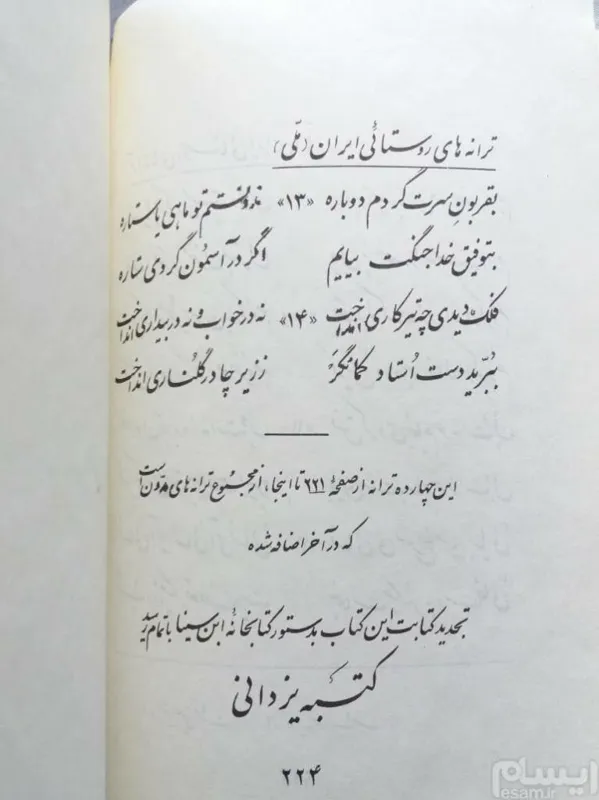 ترانه های روستائی ایران (ملّی)
بقربون سرت گردم دوباره «۱۳» ندونستم تو ماهی یا ستاره
بتوفیق خدا جنگت بیایم اگر در آسمون گردی ستاره
فلک دیدی چه تیر کاری انداخت «۱۴» نه در خواب و نه در بیداری انداخت
ببرّید دست اُستاد کمانگر ز زیر چادر گلناری انداخت
این چهارده ترانه از صفحهٔ ۲۲۱ تا اینجا، از مجموع ترانه های مدّون است
که در آخر اضافه شده
تجدید کتابت این کتاب بدستور کتابخانهٔ ابن سینا باتمام رسید
کتبه یزدانی
۲۲۴
ایسام
esam.ir